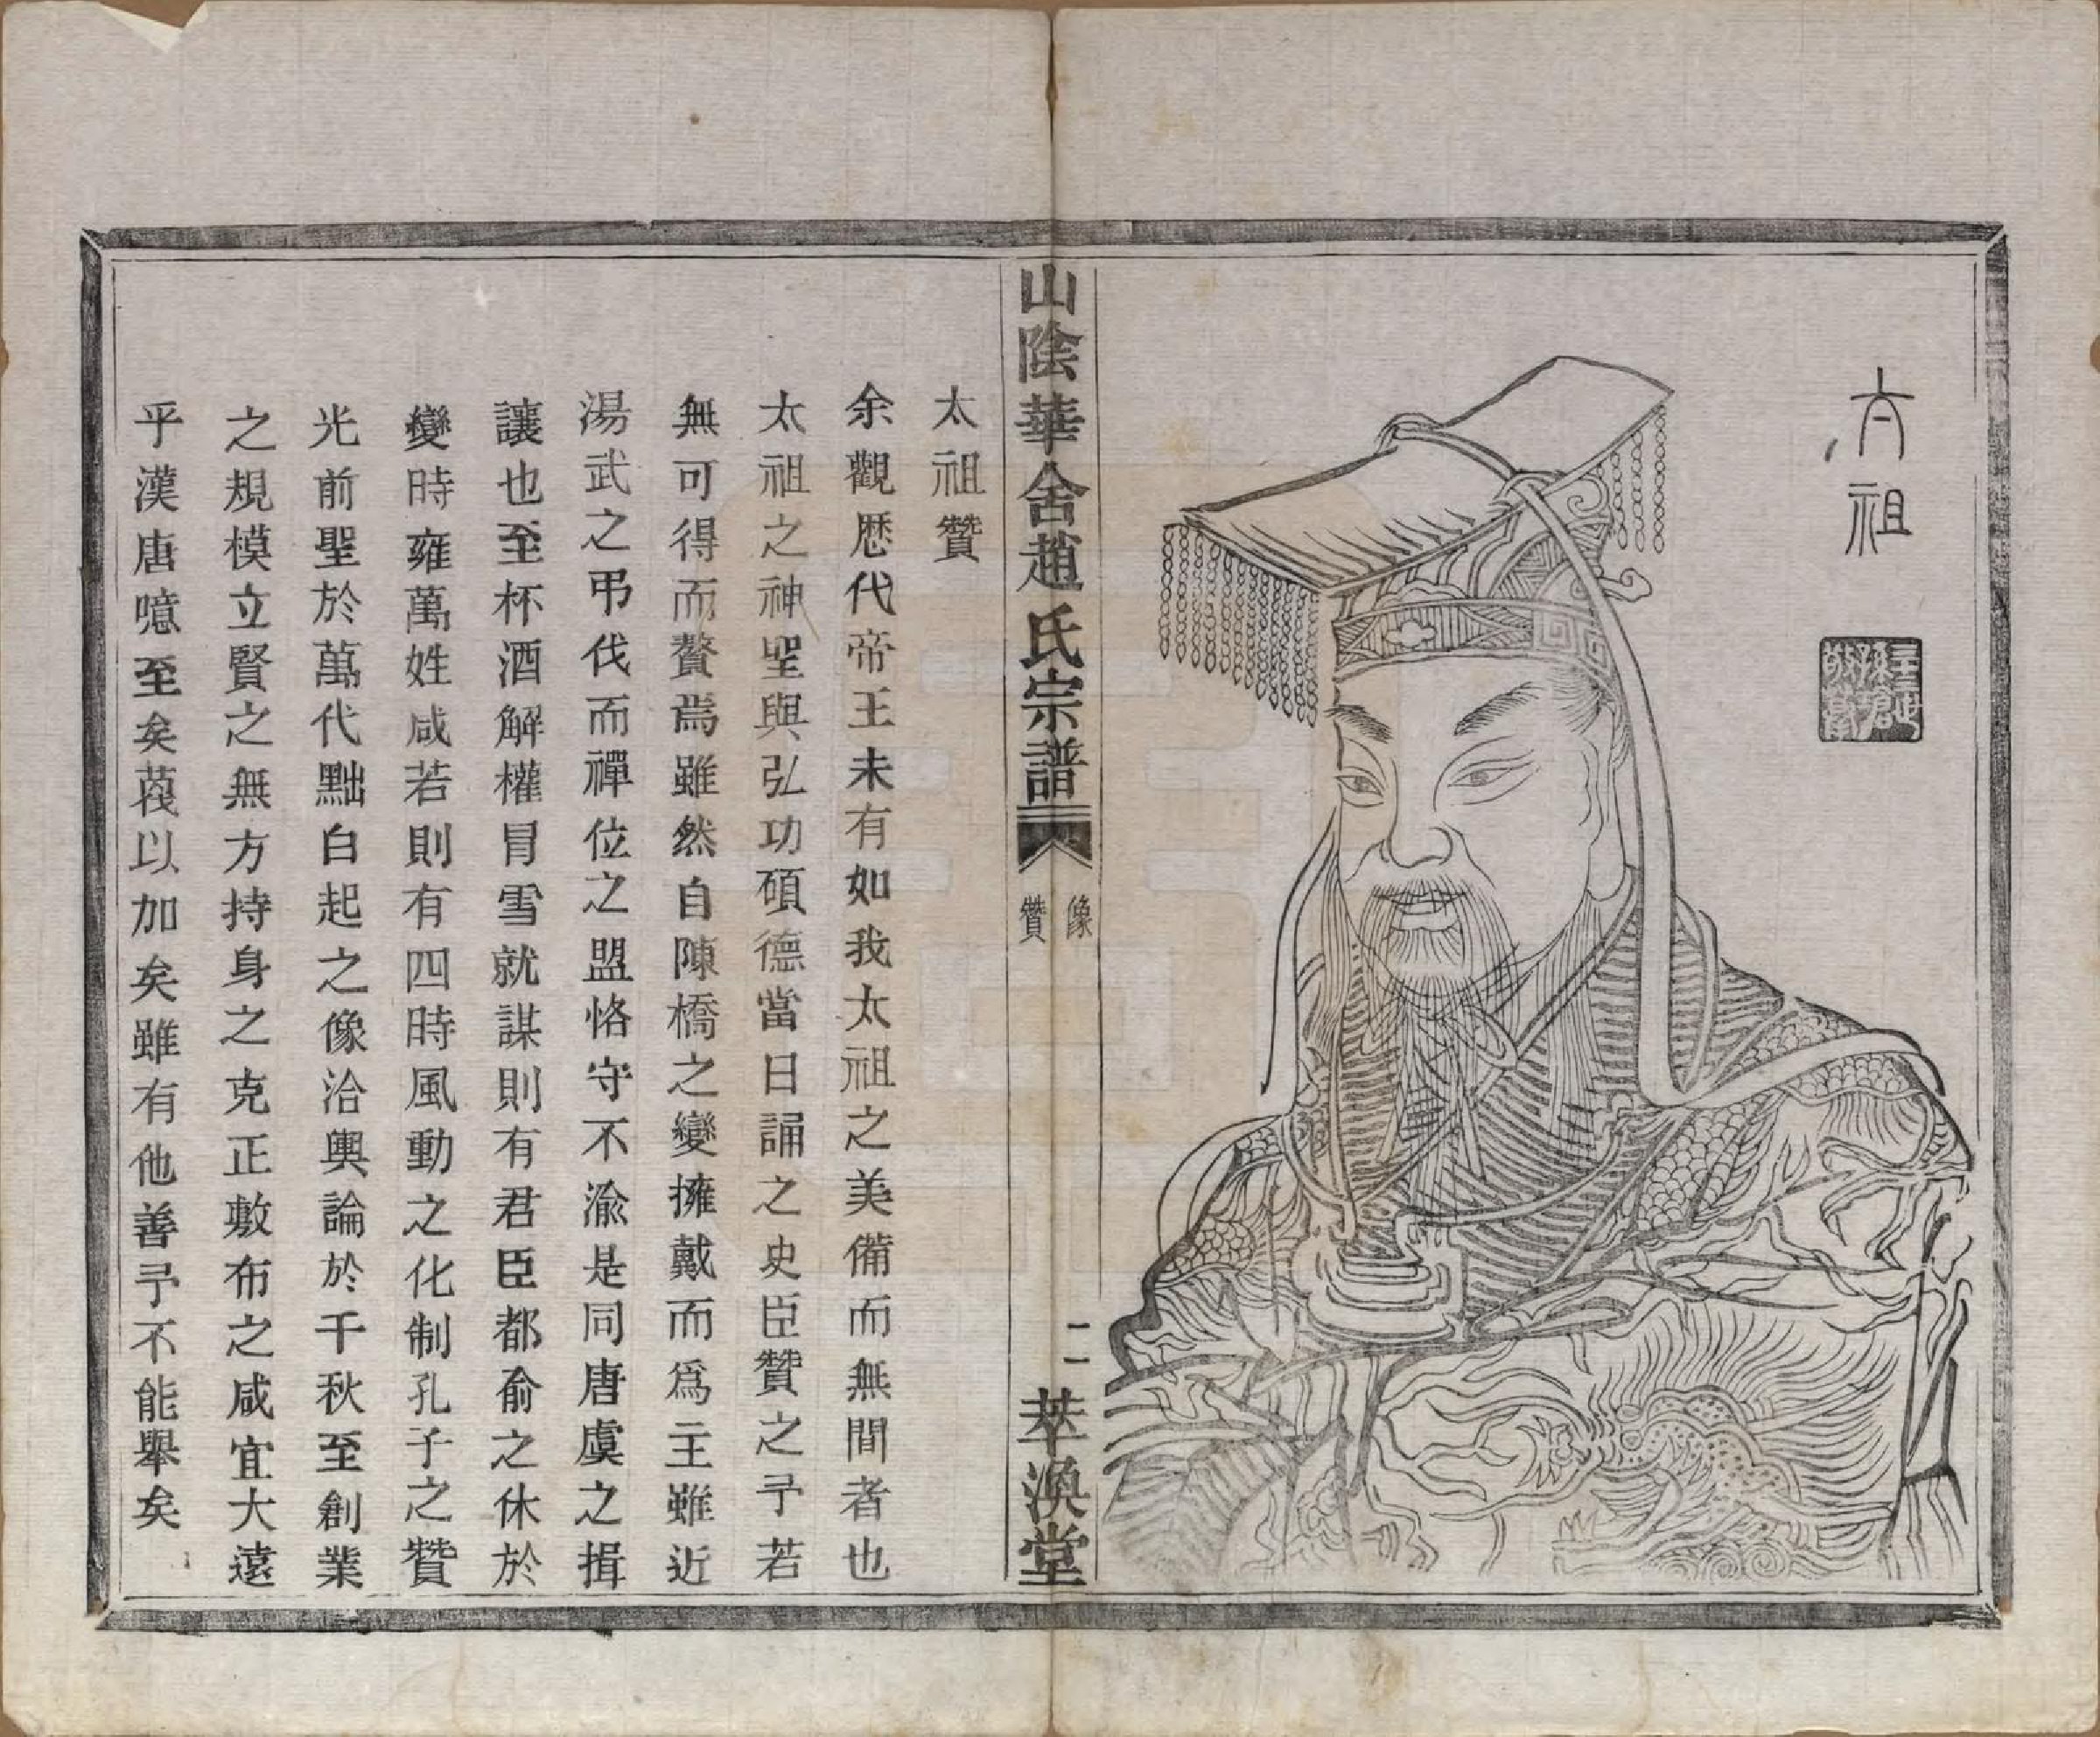 太祖
山陰華舍趙氏宗譜
像
贊
二
萃渙堂
太祖贊
余觀歷代帝王未有如我太祖之美備而無間者也
太祖之神聖與弘功碩德當日誦之史臣贊之予若
無可得而贅焉雖然自陳橋之變擁戴而爲主雖近
湯武之弔伐而禪位之盟恪守不渝是同唐虞之揖
讓也至杯酒解權冒雪就謀則有君臣都俞之休於
變時雍萬姓咸若則有四時風動之化制孔子之贊
光前聖於萬代黜白起之像洽輿論於千秋至創業
之規模立賢之無方持身之克正敷布之咸宜大遠
乎漢唐噫至矣蔑以加矣雖有他善予不能舉矣